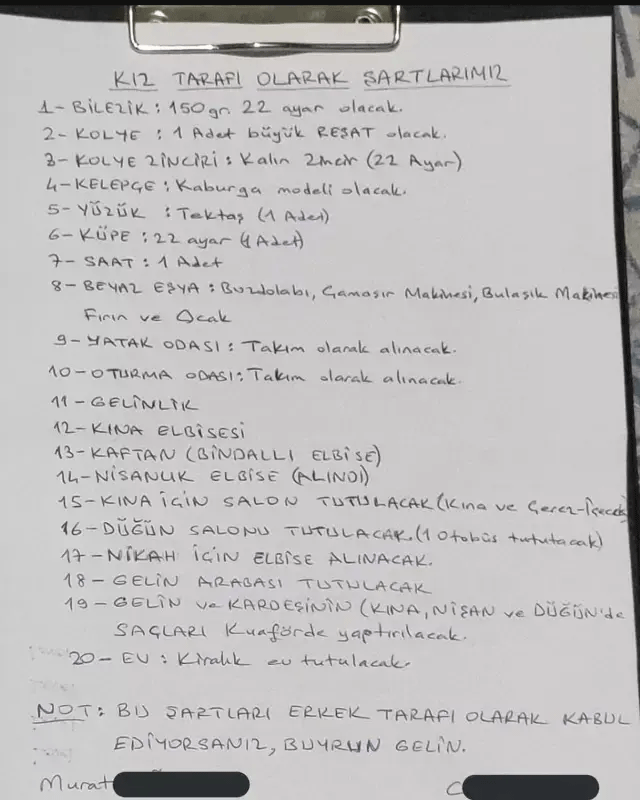 KIZ TARAFI OLARAK ŞARTLARIMIZ
1- BİLEZİK : 150gr. 22 ayar olacak.
2- KOLYE : 1 Adet büyük REŞAT olacak.
3- KOLYE ZİNCİRİ : Kalın Zincir (22 Ayar)
4- KELEPÇE : Kaburga modeli olacak.
5- YÜZÜK : Tektaş (1 Adet)
6- KÜPE : 22 ayar (1 Adet)
7- SAAT : 1 Adet
8- BEYAZ EŞYA : Buzdolabı, Çamaşır Makinesi, Bulaşık Makinesi
Fırın ve Ocak
9- YATAK ODASI : Takım olarak alınacak.
10- OTURMA ODASI : Takım olarak alınacak.
11- GELİNLİK
12- KINA ELBİSESİ
13- KAFTAN (BİNDALLI ELBİSE)
14- NİŞANLIK ELBİSE (ALINDI)
15- KINA İÇİN SALON TUTULACAK (Kına ve Çerez-İçecek)
16- DÜĞÜN SALONU TUTULACAK. (1 Otobüs tutulacak)
17- NİKAH İÇİN ELBİSE ALINACAK.
18- GELİN ARABASI TUTULACAK
19- GELİN ve KARDEŞİNİN (KINA, NİŞAN ve DÜĞÜN'de
SAÇLARI Kuaförde yaptırılacak.
20- EV : Kiralık ev tutulacak.
NOT : BU ŞARTLARI ERKEK TARAFI OLARAK KABUL
EDİYORSANIZ, BUYRUN GELİN.
Murat